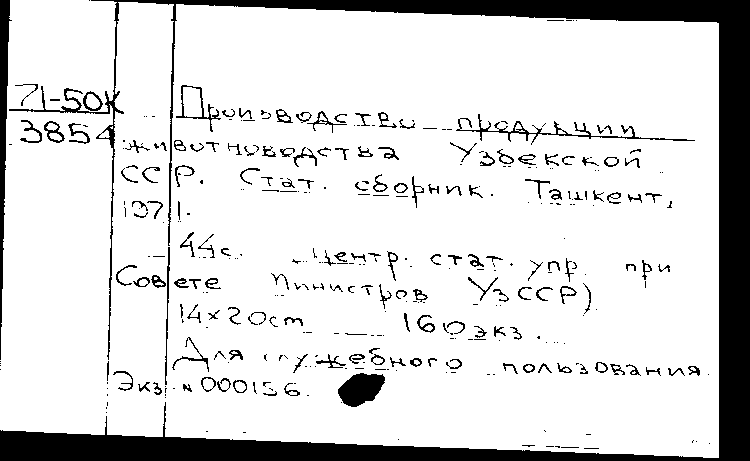 71-50К
3854
Производство продукции
животноводства Узбекской
ССР. Стат. сборник. Ташкент,
1971.
44с. Центр. стат. упр. при
Совете Министров УзССР)
14x20cm 160 экз.
Для служебного пользования.
Экз. N 000156.